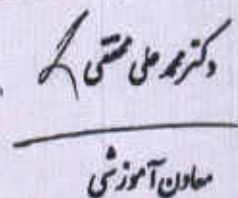 دکتر محمد علی محققی
معاون آموزشی